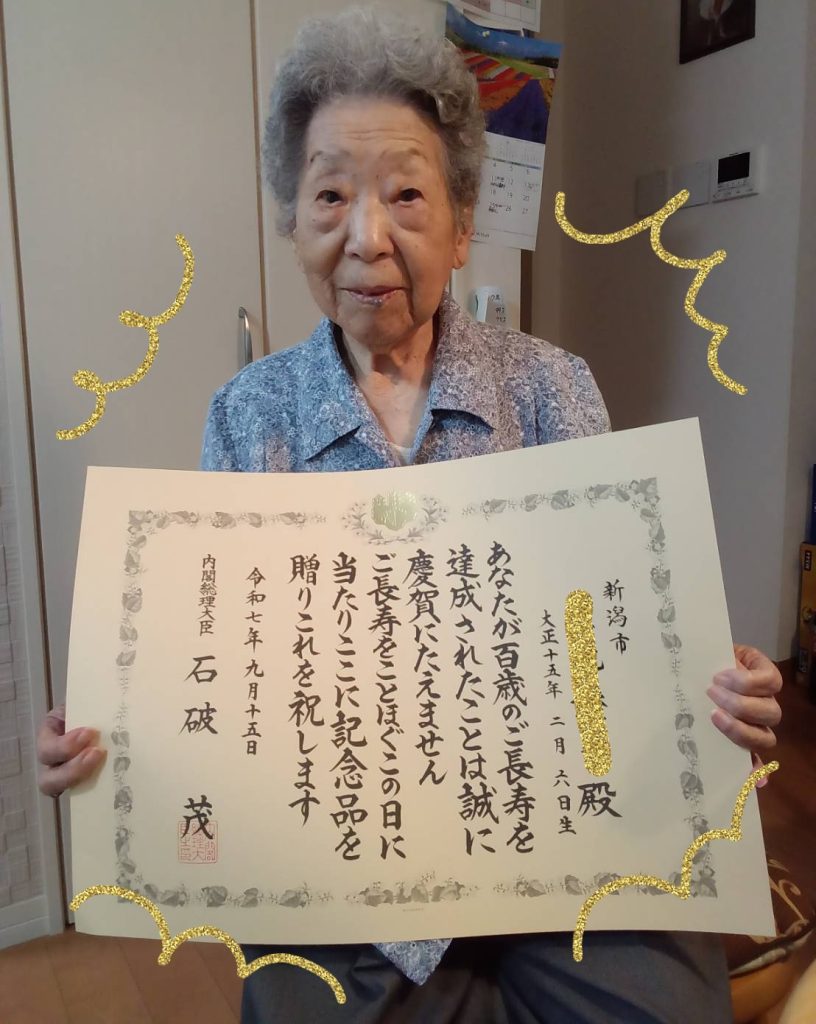 新潟市
殿
大正十五年 二月 六日生
あなたが百歳のご長寿を
達成されたことは誠に
慶賀にたえません
ご長寿をことほぐこの日に
当たりここに記念品を
贈りこれを祝します
令和七年 九月十五日
内閣総理大臣 石破 茂